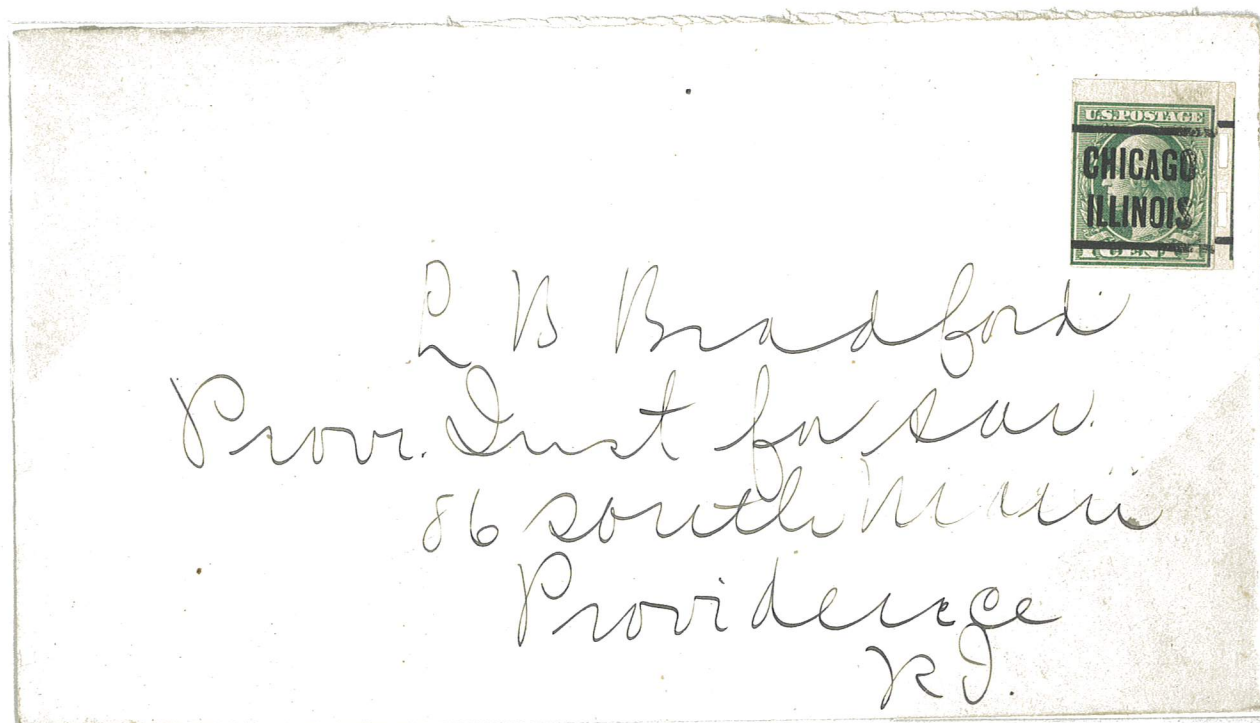 U.S. POSTAGE
CHICAGO
ILLINOIS
1 CENT 1
L B Bradford
Prov. Inst for Sav.
86 South Main
Providence
R I.